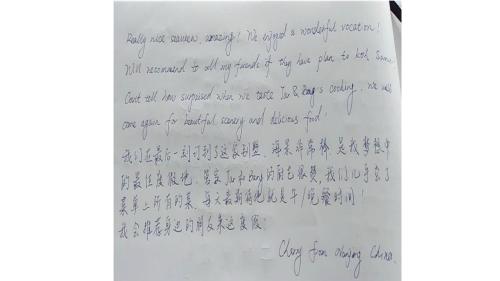 Really nice seaview, amazing! We enjoyed a wonderful vacation!
Will recommend to all my friends if they have plan to koh Samui
Cant tell how surprised when we taste & Bang's cooking. We will
come again for beautiful scenery and delicious food!
我们在最后一刻订到了这家别墅，海景非常棒，是我梦想中
的最佳度假地。管家 & Bang 的厨艺很赞，我们几乎尝了
菜单上所有的菜，每天最期待地就是午/晚餐时间！
我会推荐身边的朋友来这度假！
from Nanjing China.